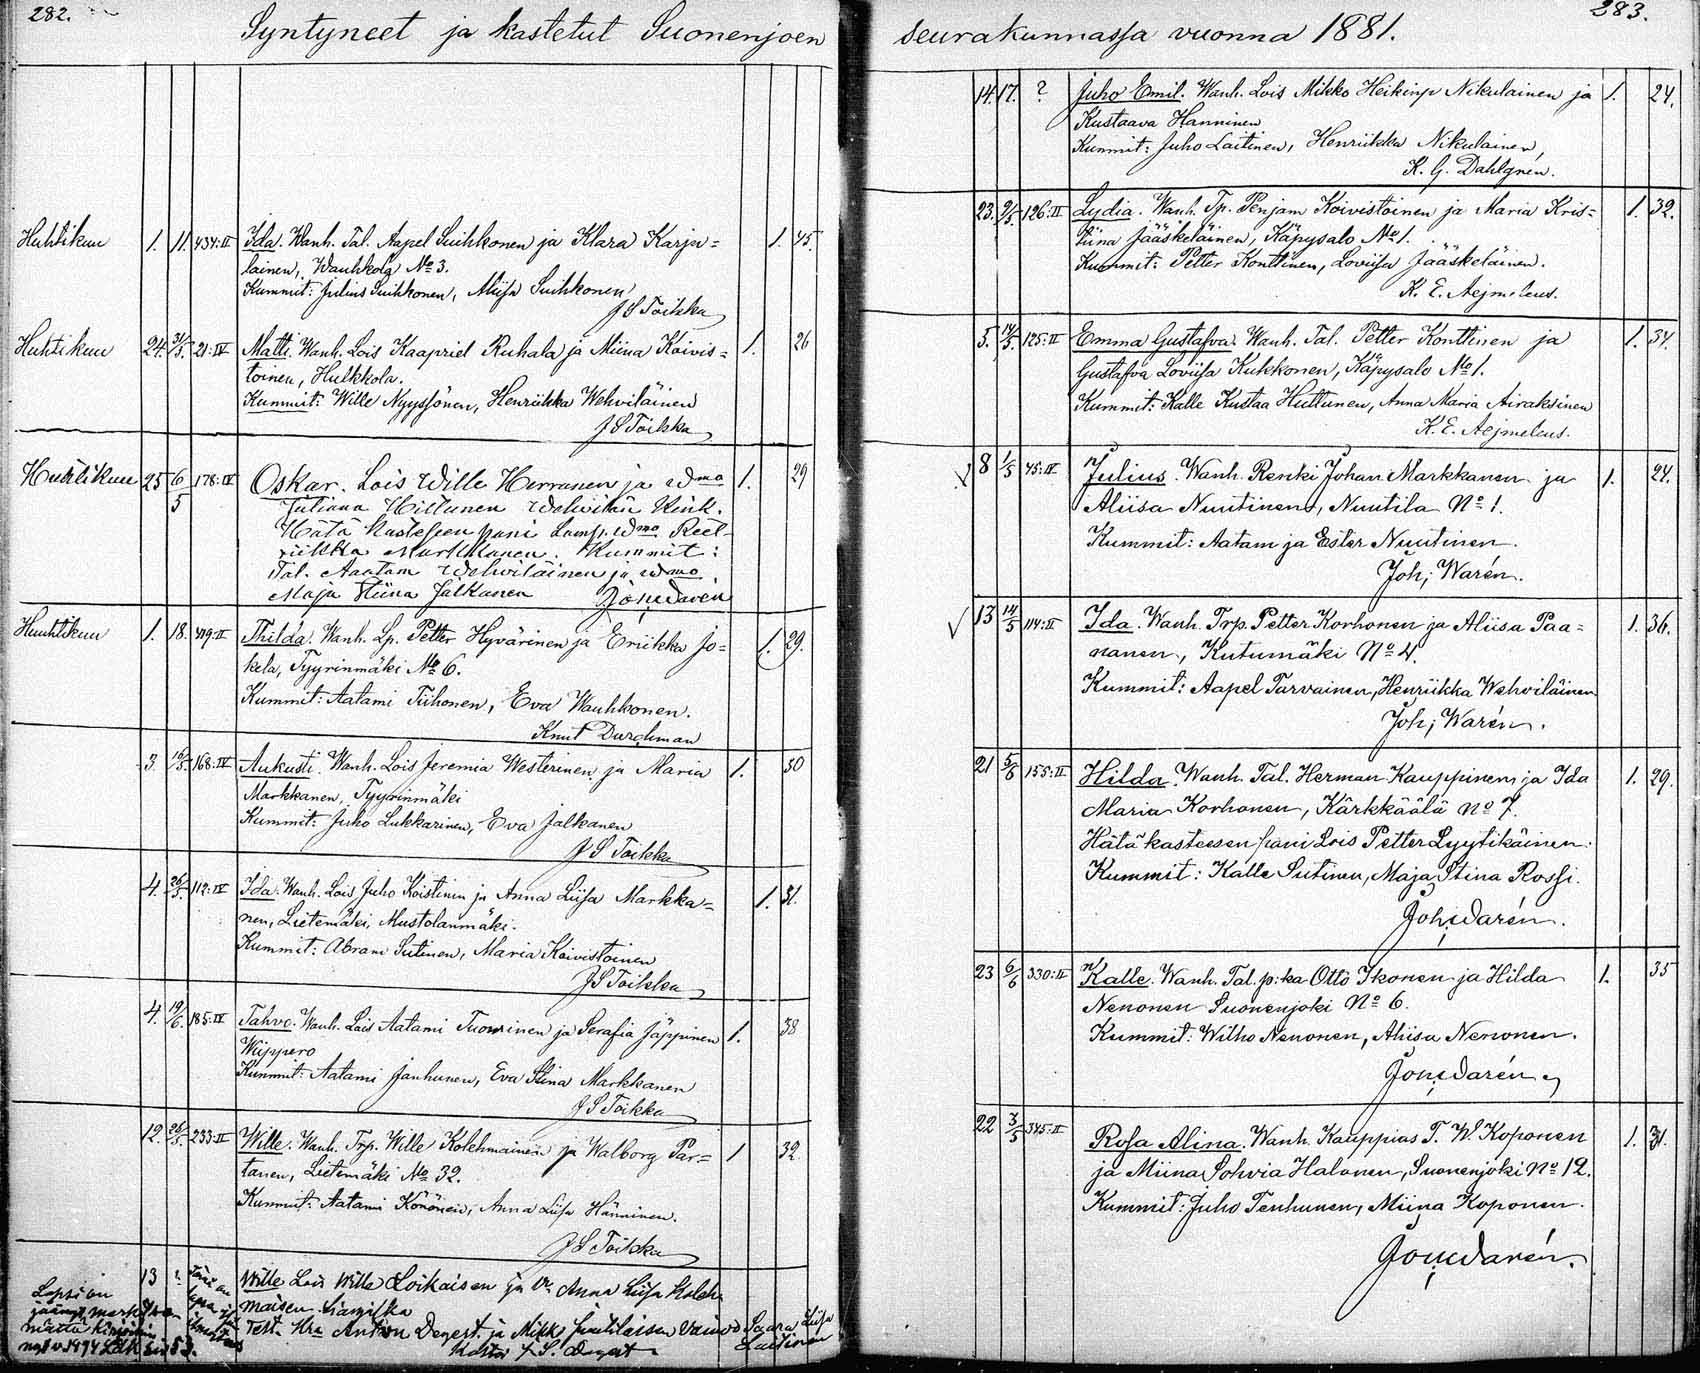 282.
Syntyneet ja kastetut Suonenjoen
Huhtikuu 1. 11. 434:II Ida. Wanh. Tal. Aapel Suihkonen ja Klara Karja= 1. 45.
lainen, Wauhkola No 3.
Kummit: Julius Suihkonen, Miisa Suihkonen
J S Toikka
Huhtikuu 24. 31/5. 21:IV Matti. Wanh. Lois Kaapriel Ruhala ja Miina Koivis= 1. 26
toinen, Hulkkola.
Kummit: Wille Nyyssönen, Henriikka Wehviläinen
J S Toikka
Huhtikuu 25 6/5 178:IV Oskar. Lois Wille Herranen ja Wmo 1. 29
Juliana Hillunen
Hätä kasteseen pani Wmo Reet-
riikka Markkanen. Kummit:
Tal. Aaatam Wehviläinen ja Wmo
Maja Stiina Jalkanen Joh; Warén
Huuhtikuu 1. 18. 419:II Thilda. Wanh. Lp. Petter Hyvärinen ja Eriikka Jo= 1. 29.
kela, Tyyrinmäki No 6.
Kummit: Aatami Tiihonen, Eva Wauhkonen.
Knut Durchman
3. 16/5. 168:IV Aukusti. Wanh. Lois Jeremia Westerinen ja Maria 1. 30
Markkanen, Tyyrinmäki
Kummit: Juho Lukkarinen, Eva Jalkanen
J S Toikka
4. 26/5. 112:IV Ida. Wanh. Lois Juho Koistinen ja Anna Liisa Markka= 1. 31.
nen, Lietemäki, Mustolanmäki.
Kummit: Abram Sutinen, Maria Koivistoinen
J S Toikka
4. 19/6. 185:IV Tahvo. Wanh. Lois Aatami Tuovinen ja Serafia Jäppinen 1. 38
Wiippero
Kummit: Aatami Janhunen, Eva Stina Markkanen
J S Toikka
12. 26/5. 233:II Wille. Wanh. Trp. Wille Kolehmainen ja Walborg Par= 1 32.
tanen, Lietemäki No 32.
Kummit: Aatami Könönen, Anna Liisa Hänninen.
J S Toikka
13 ? Wille Lois Wille Loikaisen ja Vr Anna Liisa Koleh
maisen.
Test. Hra Anton Degert ja Mikk Vaimo Saara Liisa
Laitinen
Kastoi S. Degert
Lapsi on
283.
seurakunnassa vuonna 1881.
14. 17. ? Juho Emil. Wanh. Lois Mikko Heikinp Nikulainen ja 1. 24.
Kustaava Hänninen
Kummit: Juho Laitinen, Henriikka Nikulainen,
K. G. Dahlgren.
23. 9/5. 126:II Lydia. Wanh. Tp. Penjam Koivistoinen ja Maria Kris= 1. 32.
tiina Jääskeläinen, Käpysalo No 1.
Kummit: Petter Konttinen, Loviisa Jääskeläinen.
K. E. Aejmeleus.
5. 14/5. 125:II Emma Gustafva. Wanh. Tal. Petter Konttinen ja 1. 34.
Gustafva Loviisa Kukkonen, Käpysalo No 1.
Kummit: Kalle Kustaa Huttunen, Anna Maria Airaksinen
K. E. Aejmeleus.
8 1/5 45:IV Julius. Wanh. Renki Johan Markkanen ja 1. 24.
Aliisa Nuutinen, Nuutila No 1.
Kummit: Aatam ja Ester Nuutinen.
Joh; Warén.
13 14/5 114:II Ida. Wanh. Trp. Petter Korhonen ja Aliisa Paa= 1. 36.
nanen, Kutumäki No 4.
Kummit: Aapel Tarvainen, Henriikka Wehviläinen
Joh; Warén.
21 5/6 155:II Hilda. Wanh. Tal. Herman Kauppinen ja Ida 1. 29.
Maria Korhonen, Kärkkäälä No 7.
Hätäkasteesen pani Lois Petter Lyytikäinen.
Kummit: Kalle Sutinen, Maja Stina Rossi.
Joh; Warén.
23 6/6 330:II Kalle. Wanh. Tal. p:ka Otto Ikonen ja Hilda 1. 35
Nenonen Suonenjoki No 6.
Kummit: Wilho Nenonen, Aliisa Nenonen.
Joh; Warén
22 3/5 345:II Rosa Alina. Wanh. Kauppias T. W. Koponen 1. 31.
ja Miina Sohvia Halonen, Suonenjoki No 12.
Kummit: Juho Tenhunen, Miina Koponen.
Joh; Warén.